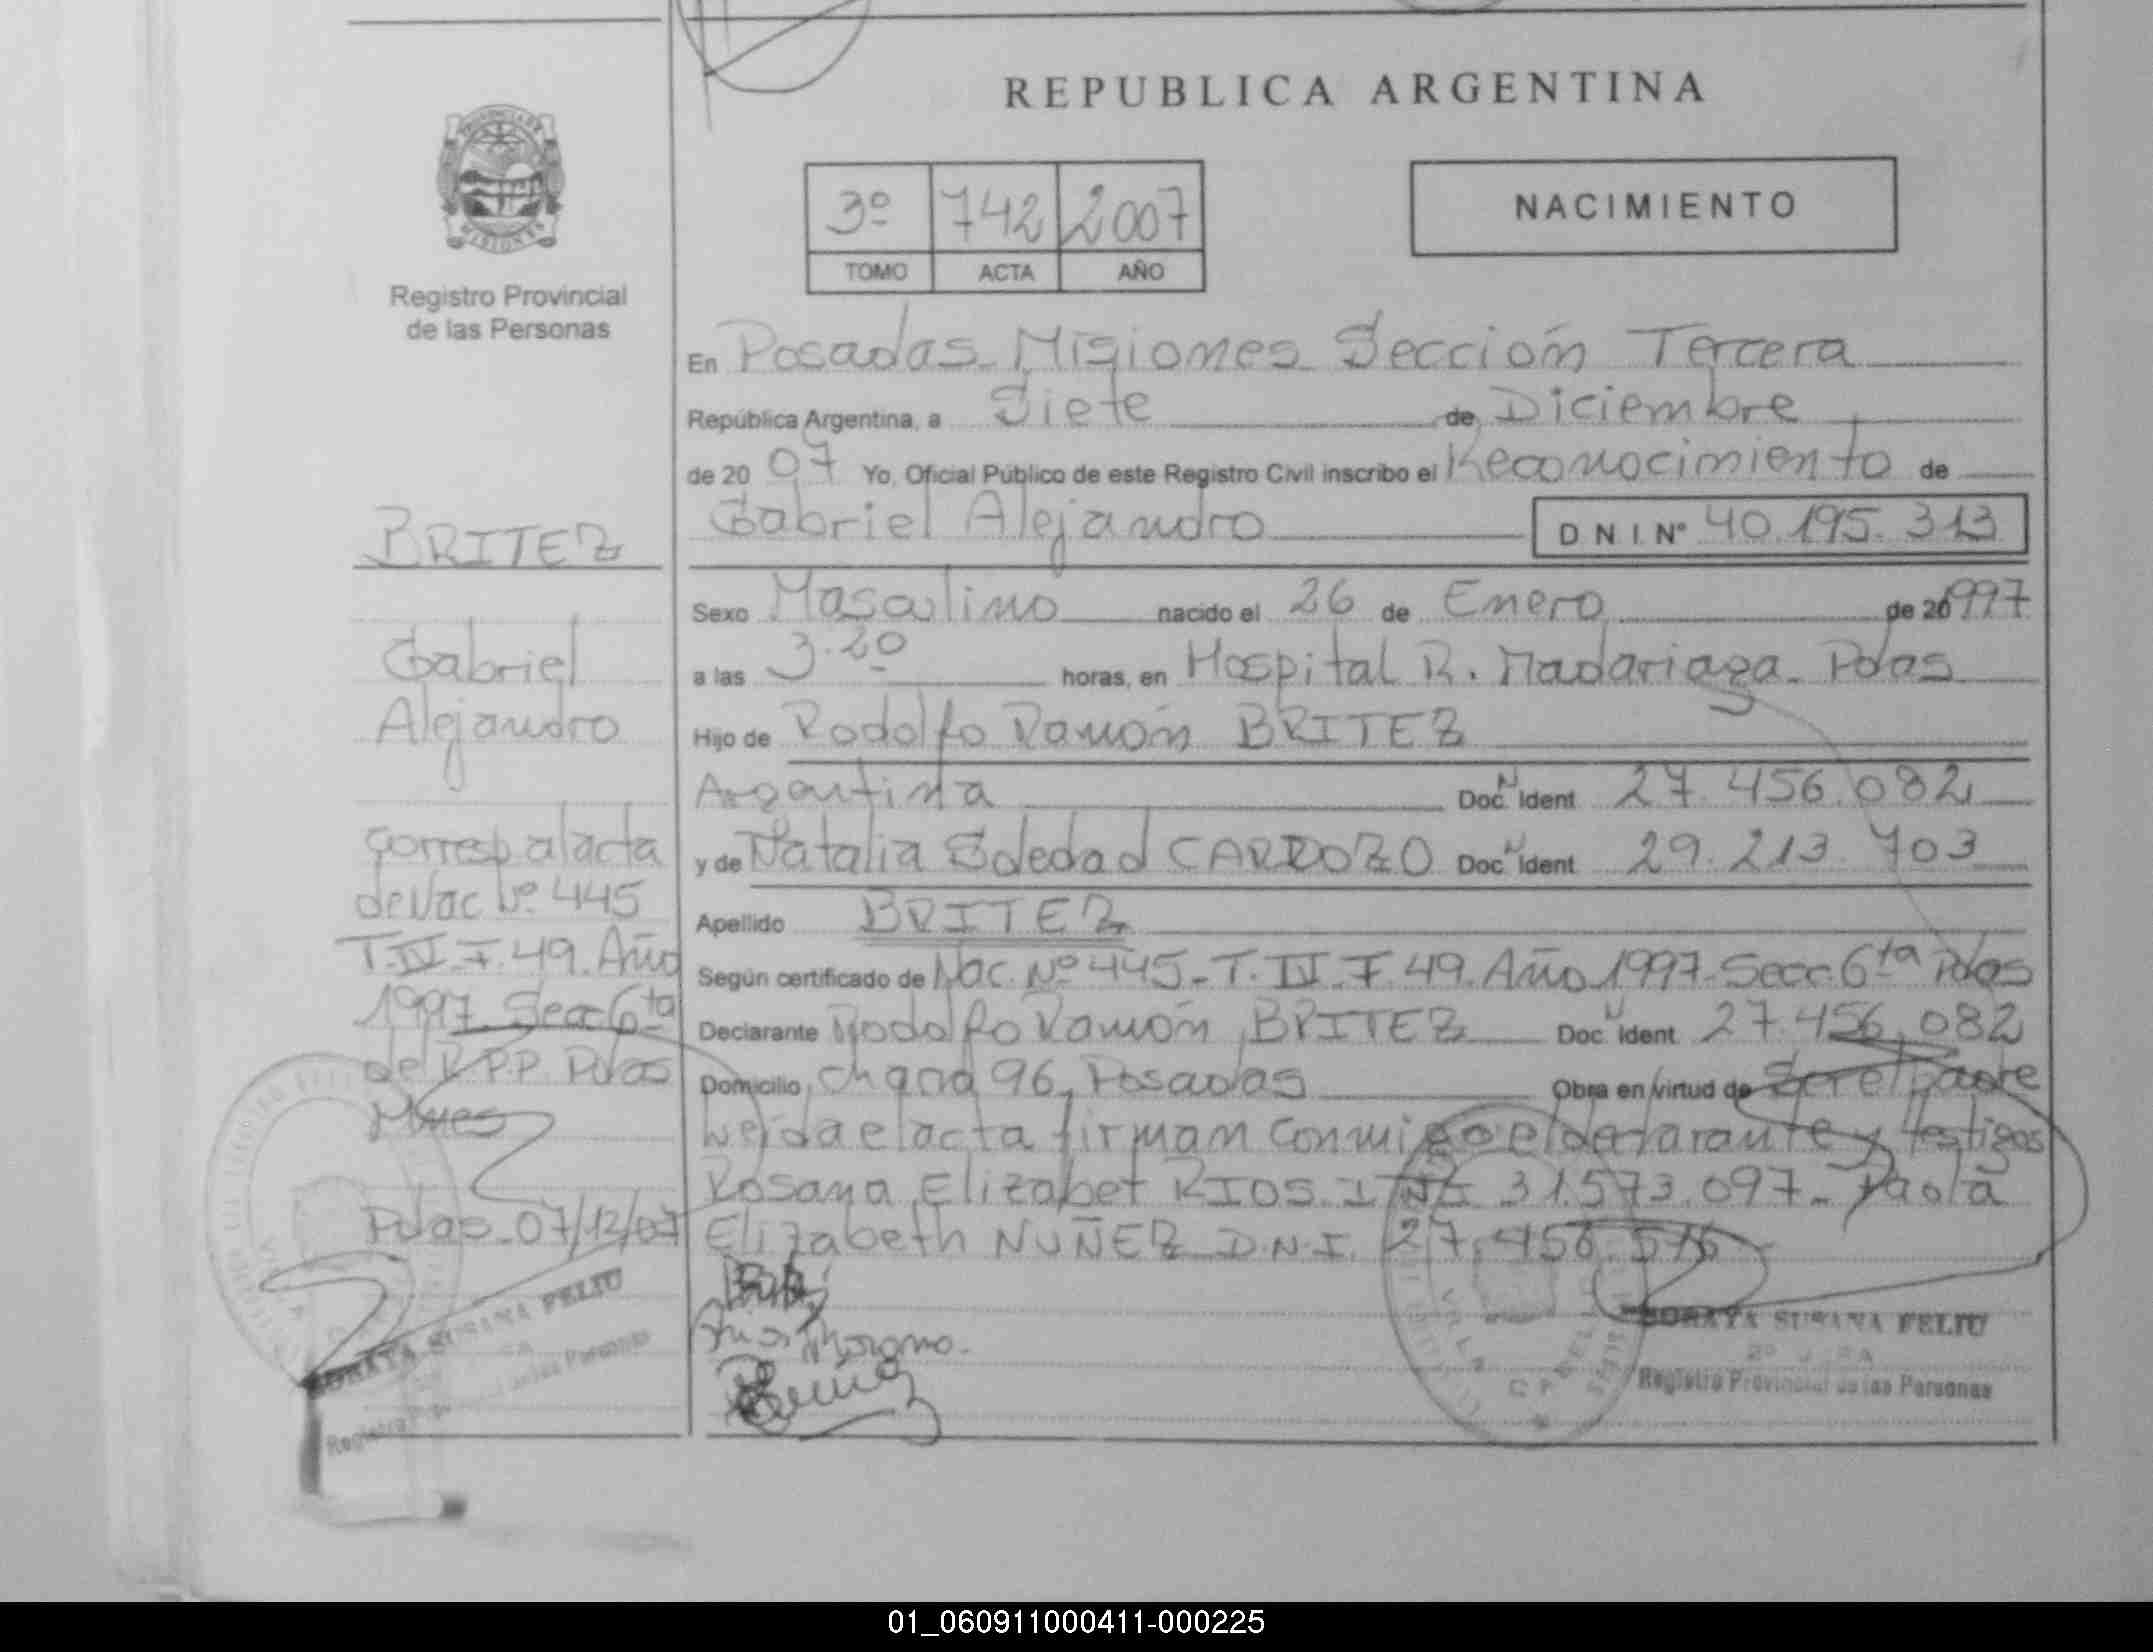 REPUBLICA ARGENTINA
3º 742 2007
TOMO ACTA AÑO
NACIMIENTO
Registro Provincial
de las Personas
En Posadas Misiones Sección Tercera
República Argentina, a Siete de Diciembre
de 20 07 Yo, Oficial Público de este Registro Civil inscribo el Reconocimiento de
Gabriel Alejandro DNI Nº 40.195.313
Sexo Masculino nacido el 26 de Enero de 20 1997
a las 3.20 horas, en Hospital R. Madariaga. Pdas
Hijo de Rodolfo Ramón BRITEZ
Argentina Doc. Ident 27.456.082
y de Natalia Soledad CARDOZO Doc. Ident 29.213.703
Apellido BRITEZ
Según certificado de Nac. Nº 445-T.IV F.49. Año 1997-Secc. 6ta Pdas
Declarante Rodolfo Ramón BRITEZ Doc. Ident 27.456.082
Domicilio chacra 96, Posadas Obra en virtud de Ser el padre
Leída el acta firman conmigo el declarante y testigos
Rosana Elizabet RIOS. DNI 31.573.097- Paola
Elizabeth NUÑEZ D.N.I. 27.456.516
SORAYA SUSANA FELIU
Registro Provincial de las Personas
BRITEZ
Gabriel
Alejandro
Corresp al acta
de Nac Nº 445
T.IV F.49. Año
1997 Secc 6ta
de R.P.P. Pdas
Mnes
Pdas-07/12/07
SORAYA SUSANA FELIU
Registro Provincial de las Personas
01_060911000411-000225